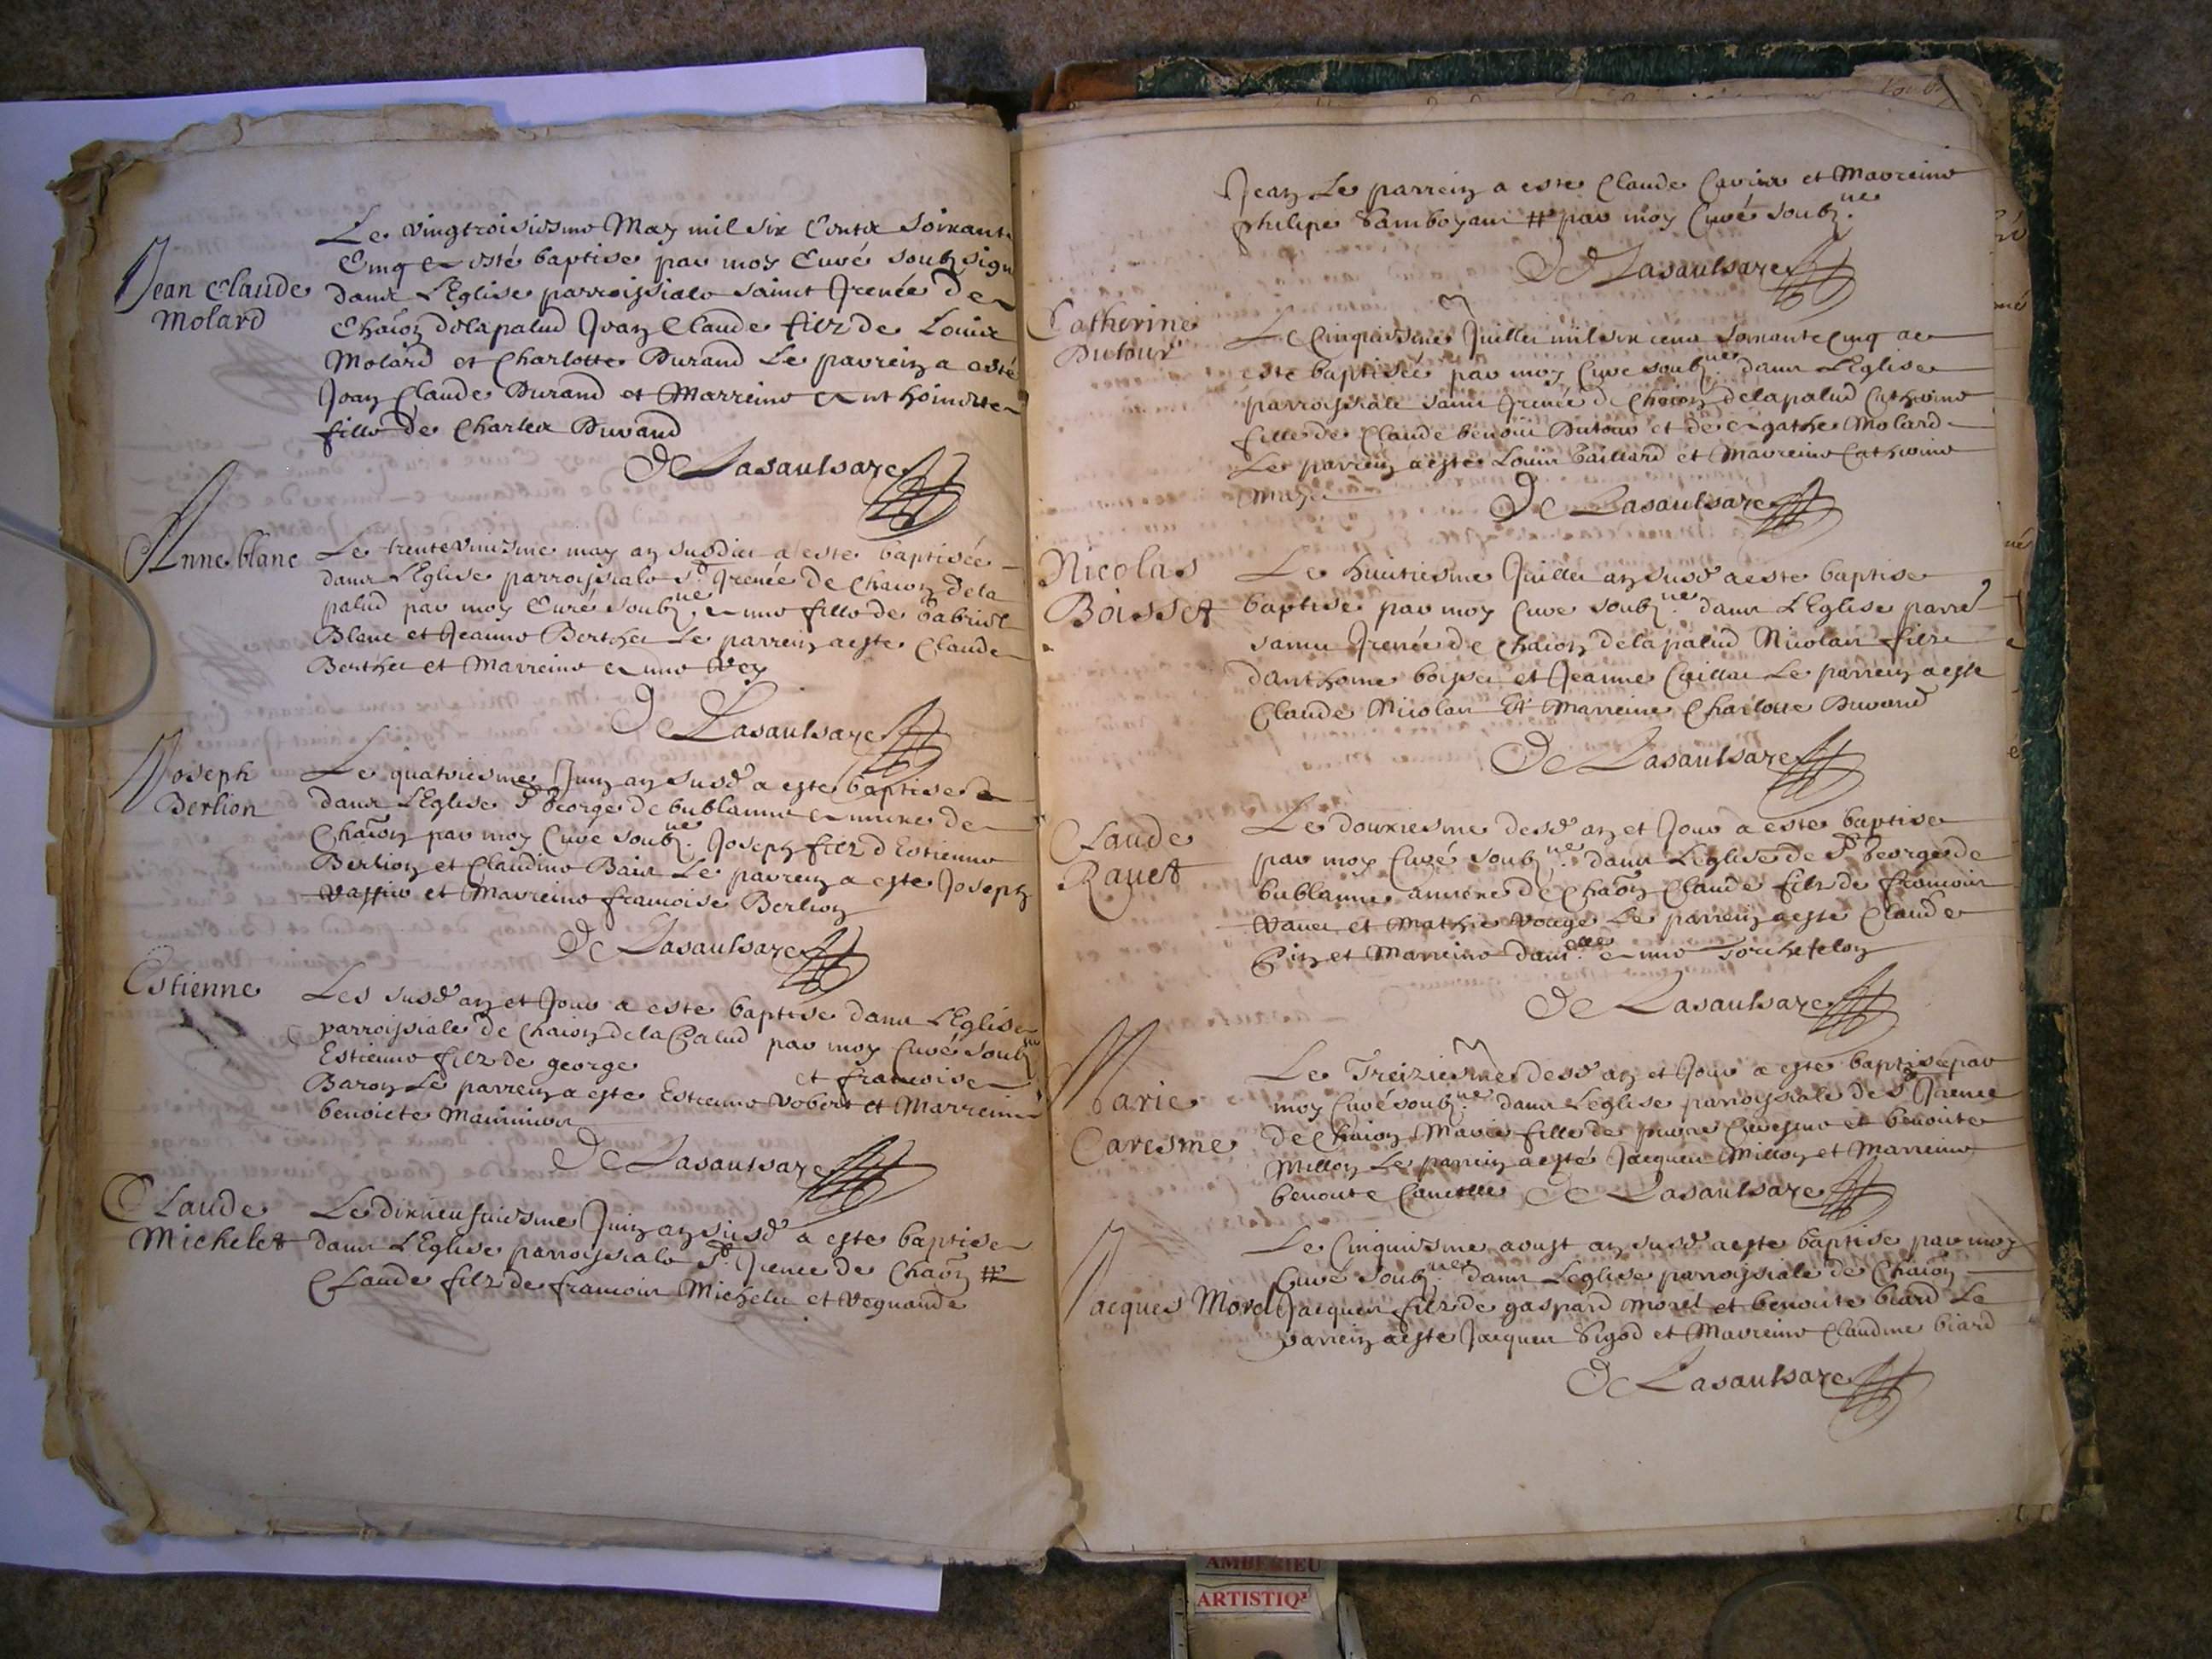 Jean Claude
Molard
Le vingtroisiesme May mil six Centz soixant
Cinq A esté baptise par moy Curé soubzsign
dans L'Eglise parroissiale sainct Irenée De
Chaion delapalud Jean Claude filz de Louis
Molard et Charlotte Durand Le parrein a esté
Jean Claude Durand et Marreine Anthoinette
fille de Charles Durand
De Lasaulsaye
Anne blanc
Le trenteuniesme may an susdict a este baptisée
dans L'Eglise parroissiale St Irenée de Chaion dela
palud par moy Curé soubz.né Anne fille de Gabriel
Blanc et Jeanne Berthet Le parrein a este Claude
Berthet et Marreine Anne Rey
De Lasaulsaye
Joseph
Berlion
Le quatriesme Juin an susd a este baptise
dans L'Eglise St George de bublanne Annexe de
Chaion par moy Curé soubz.né Joseph filz d'Estienne
Berlion et Claudine Bain Le parrein a este Joseph
et Marreine francoise Berlion
De Lasaulsaye
Estienne
Les susd an et Jour a este baptise dans L'Eglise
parroissiale de Chaion dela Palud par moy Curé soubz
Estienne filz de george
et francoise
Baron Le parrein a este Estienne Robert et Marreine
benoicte
De Lasaulsaye
Claude
Michelet
Le dixneufuiesme Juin an susd a este baptise
dans L'Eglise parroissiale St. Irenée de Chaion #
Claude filz de francois Michelet et
Jean Le parrein a este Claude et Marreine
Philipe # par moy Curé soubz.né
De Lasaulsaye
Catherine
Dutour
Le Cinquiesme Juillet mil six cens soixante Cinq a
este baptisée par moy Curé soubz.né dans L'Eglise
parroissiale sainct Irenée de Chaion delapalud Catherine
fille de Claude benoict Dutour et de Agathe Molard
Le parrein a este Louis Gaillard et Marreine Catherine
De Lasaulsaye
Nicolas
Boisset
Le huictiesme Juillet an susd a este baptise
baptise par moy Curé soubz.né dans L'Eglise parro
sainct Irenée de Chaion delapalud Nicolas filz
d'anthoine boisset et Jeanne Le parrein a este
Claude Nicolas Et Marreine Charlotte Durand
De Lasaulsaye
Claude
Rauet
Le douxiesme desd an et Jour a este baptise
par moy Curé soubz.né dans L'eglise de St George de
bublanne annexe de Chaion Claude filz de francois
Rauet et Mathie Le parrein a este Claude
et Marreine dam.lle Anne
De Lasaulsaye
Marie
Caresme
Le Treiziesme desd an et Jour a este baptisee par
moy Curé soubz.né dans L'eglise parroissiale de St Irenee
de Chaion Marie fille de pierre Caresme et benoite
Millon Le parrein a esté Jacques Millon et Marreine
benoite
De Lasaulsaye
Jacques Morel
Le Cinquiesme aoust an susd a este baptise par moy
Curé soubz.né dans L'eglise parroissiale de Chaion
Jacques filz de gaspard morel et benoite biard Le
parrein a este Jacques Sigod et Marreine Claudine biard
De Lasaulsaye
AMBERIEU
ARTISTIQ